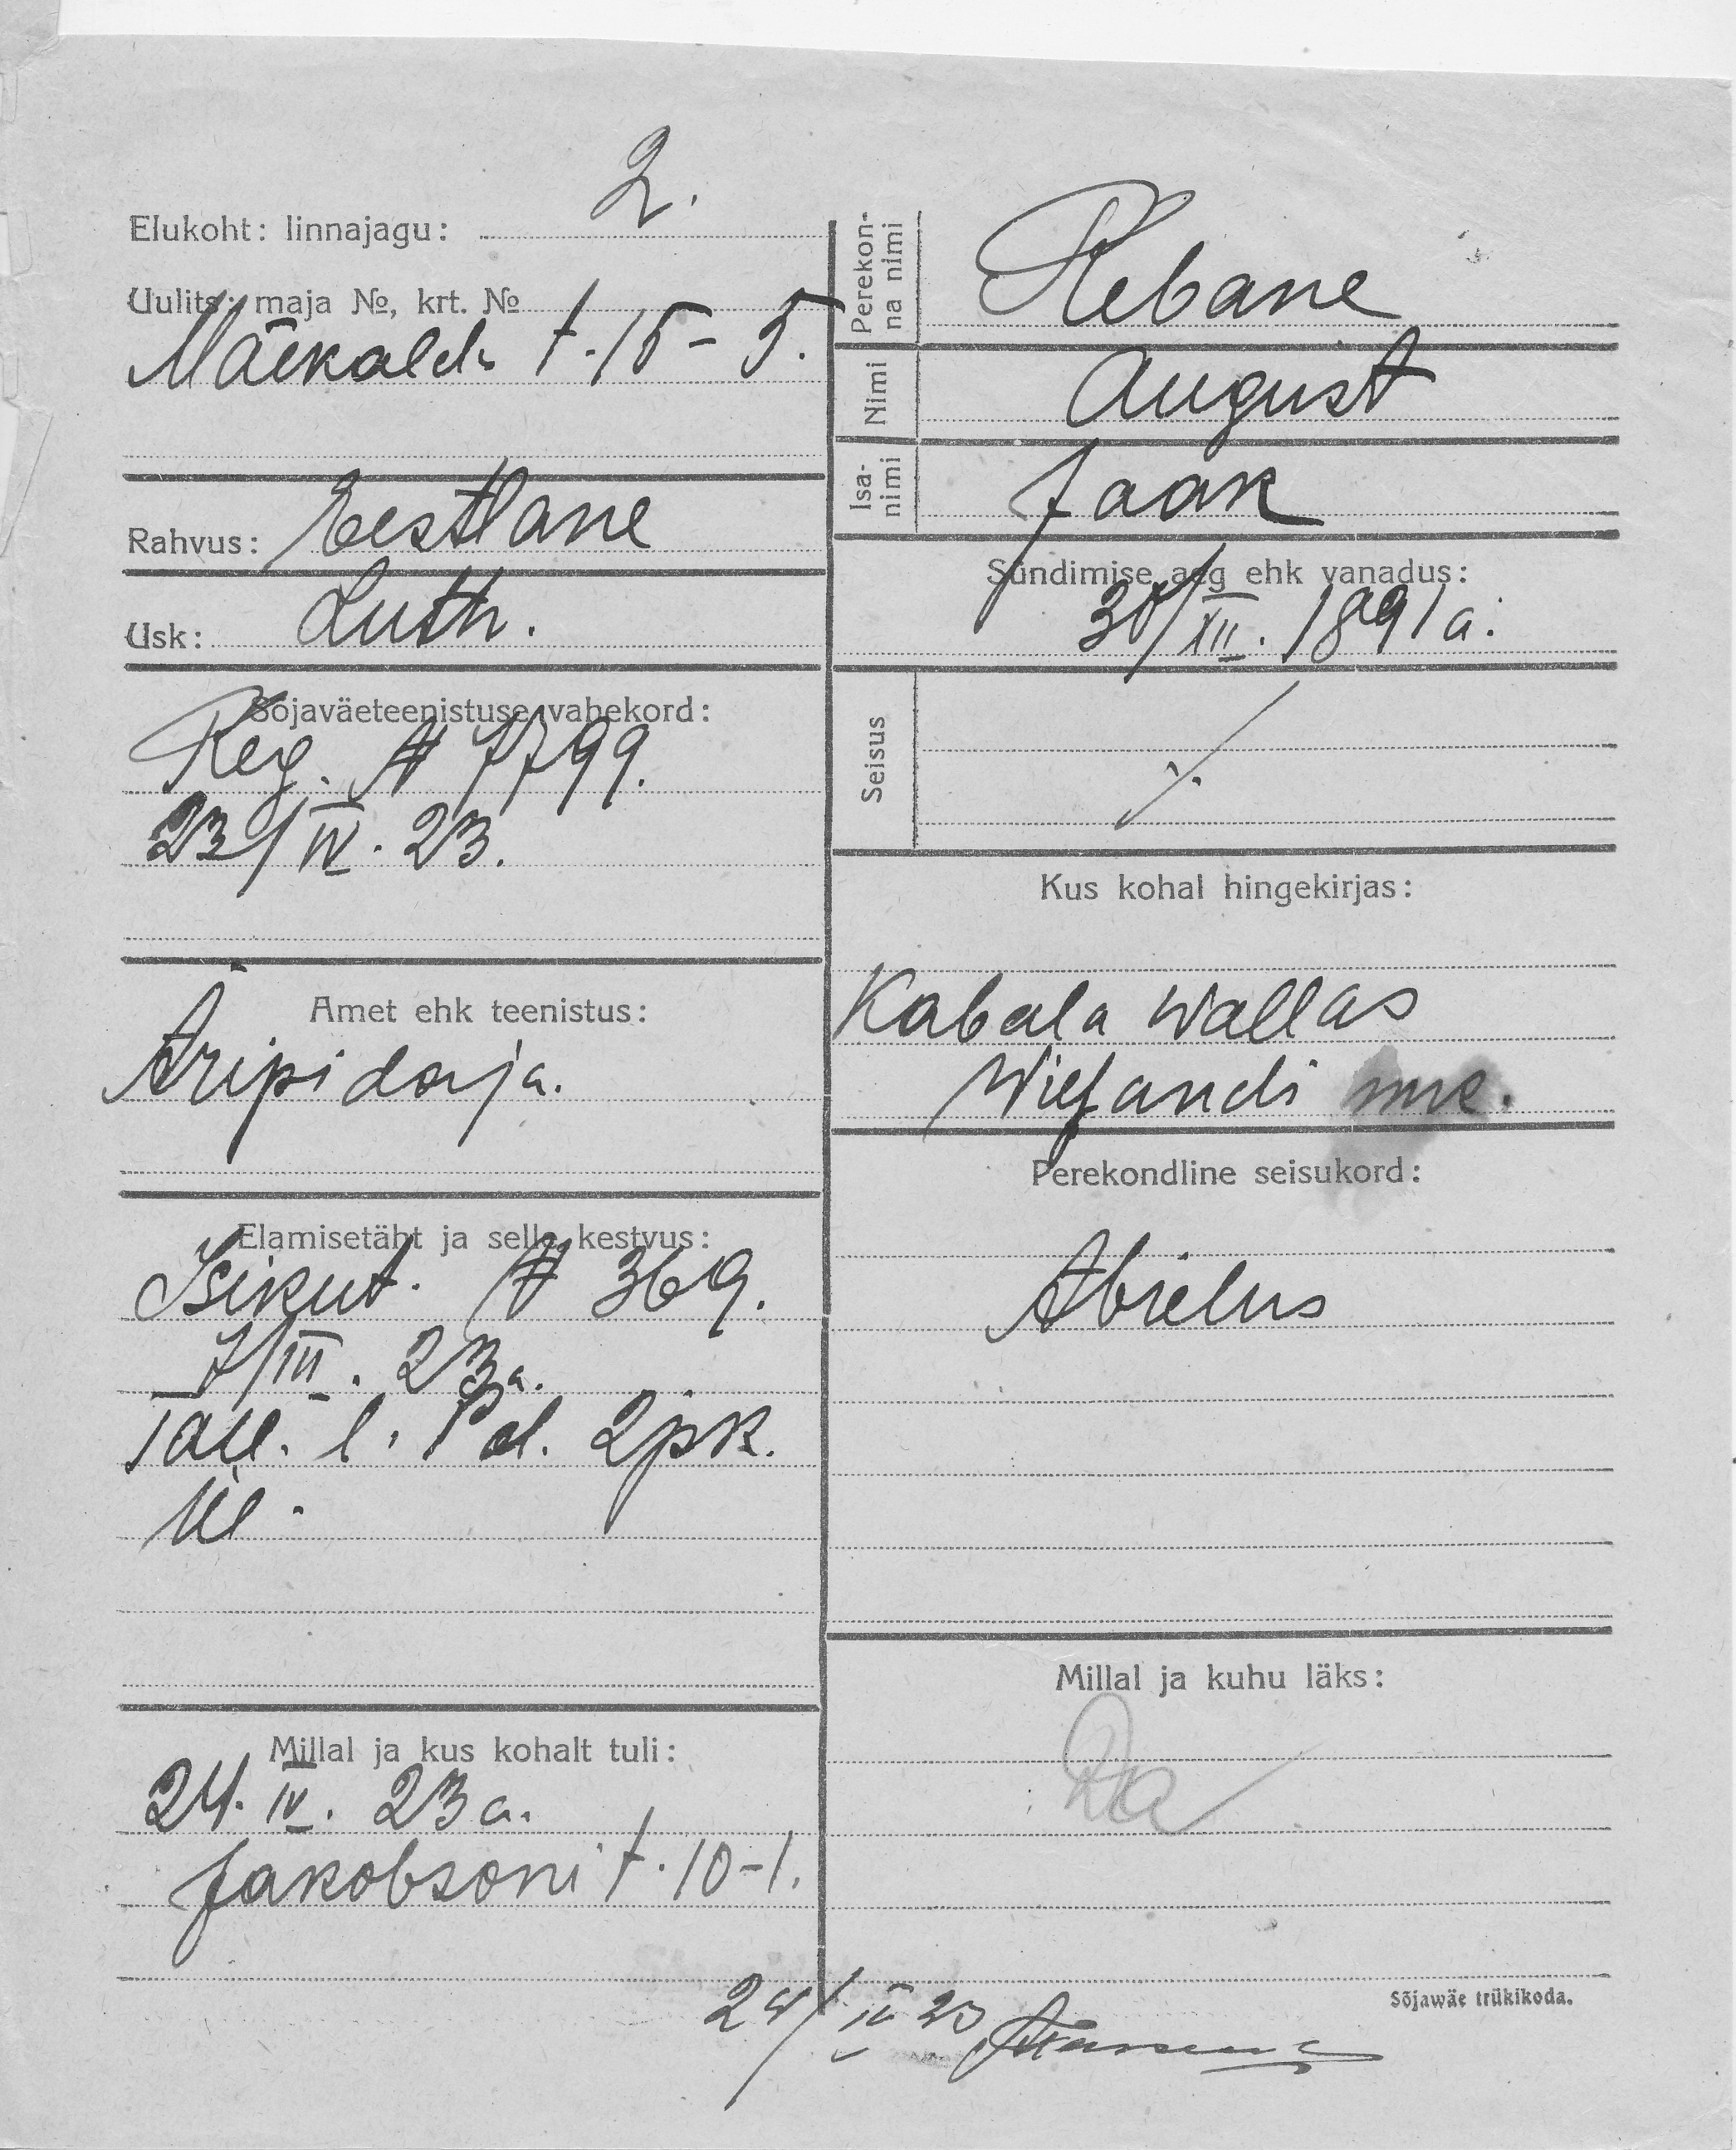 Elukoht: linnajagu: 2.
Uulits, maja №, krt. №
Mäekalda t. 15 – 5.
Rahvus: Eestlane
Usk: Luth.
Sõjaväeteenistuse vahekord:
Reg. № 7799.
23/IV. 23.
Amet ehk teenistus:
Äripidaja.
Elamisetäht ja selle kestvus:
Isikut. № 369.
7/III. 23 a.
Tall. l. Pol. 2 jsk.
Ül.
Millal ja kus kohalt tuli:
24. IV. 23 a.
Jakobsoni t. 10-1.
Perekon-
na nimi
Rebane
Nimi
August
Isa-
nimi
Jaak
Sündimise aeg ehk vanadus:
/XII. 1891 a.
Seisus
Kus kohal hingekirjas:
Kabala wallas
Wiljandi mk.
Perekondline seisukord:
Abielus
Millal ja kuhu läks:
24/IV 23
Sõjawäe trükikoda.